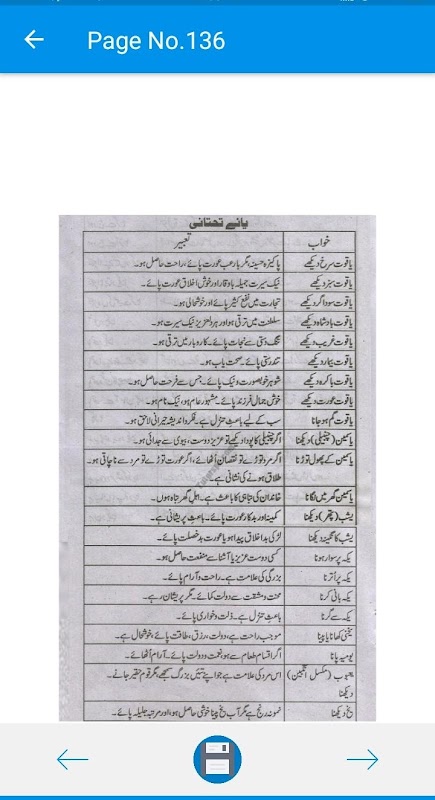 Page No.136
یائے تحتانی
خواب تعبیر
یاقوت سرخ دیکھے پاکیزہ حسینہ مگر بارعب عورت پائے، راحت حاصل ہو۔
یاقوت سبز دیکھے نیک سیرت جمیلہ باوقار اور خوش اخلاق عورت پائے۔
یاقوت سوداگر دیکھے تجارت میں نفع کثیر پائے اور خوشحالی ہو۔
یاقوت بادشاہ دیکھے سلطنت میں ترقی ہو اور ہردلعزیز نیک سیرت ہو۔
یاقوت غریب دیکھے تنگ دستی سے نجات پائے۔ کاروبار میں ترقی ہو۔
یاقوت بیمار دیکھے تندرستی پائے۔ صحت یاب ہو۔
یاقوت باکرہ دیکھے شوہر خوبصورت و نیک پائے۔ جس سے فرحت حاصل ہو۔
یاقوت عورت دیکھے خوش جمال فرزند پائے۔ مشہور عام ہو، نیک نام ہو۔
یاقوت گم ہو جانا سب کے لیے باعث تنزل ہے۔ فکر و اندیشہ حیرانی لاحق ہو۔
یاسمین (چنبیلی) دیکھنا اگر چنبیلی کا پودا دیکھے تو عزیز دوست، بیوی سے جدائی ہو۔
یاسمین کے پھول توڑنا اگر مرد توڑے تو نقصان اُٹھائے، اگر عورت توڑے تو مرد سے ناچاقی ہو۔
طلاق ہونے کی نشانی ہے۔
یاسمین گھر میں لگانا خاندان کی تباہی کا باعث ہے۔ اہل گھر تباہ ہوں۔
یشب (پتھر) دیکھنا کمینہ اور بدکار عورت پائے۔ باعث پریشانی ہے۔
یشب کا نگینہ دیکھنا لڑکی بداخلاق پیدا ہو یا عورت بدخصلت پائے۔
یکہ پر سوار ہونا کسی دوست عزیز یا آشنا سے منفعت حاصل ہو۔
یکہ پر اُترنا بزرگی کی علامت ہے۔ راحت و آرام پائے۔
یکہ بانی کرنا محنت و مشقت سے دولت کمائے۔ مگر پریشان رہے۔
یکہ سے گرنا باعث تنزل ہے۔ ذلت و خواری پائے۔
یخنی کھانا یا پینا موجب راحت ہے، دولت، رزق، طاقت پائے، خوشحال ہے۔
یومیہ پانا اگر اقسام طعام سے ہو نعمت و دولت پائے۔ آرام اُٹھائے۔
یعسوب (مکس انگبین) اس مرد کی علامت ہے جو اپنے تئیں بزرگ سمجھے، مگر قوم حقیر جانے۔
دیکھنا
یخ دیکھنا نمونہ رنج ہے مگر آب یخ پینا خوشی حاصل ہو، اور مرتبہ جلیلہ پائے۔